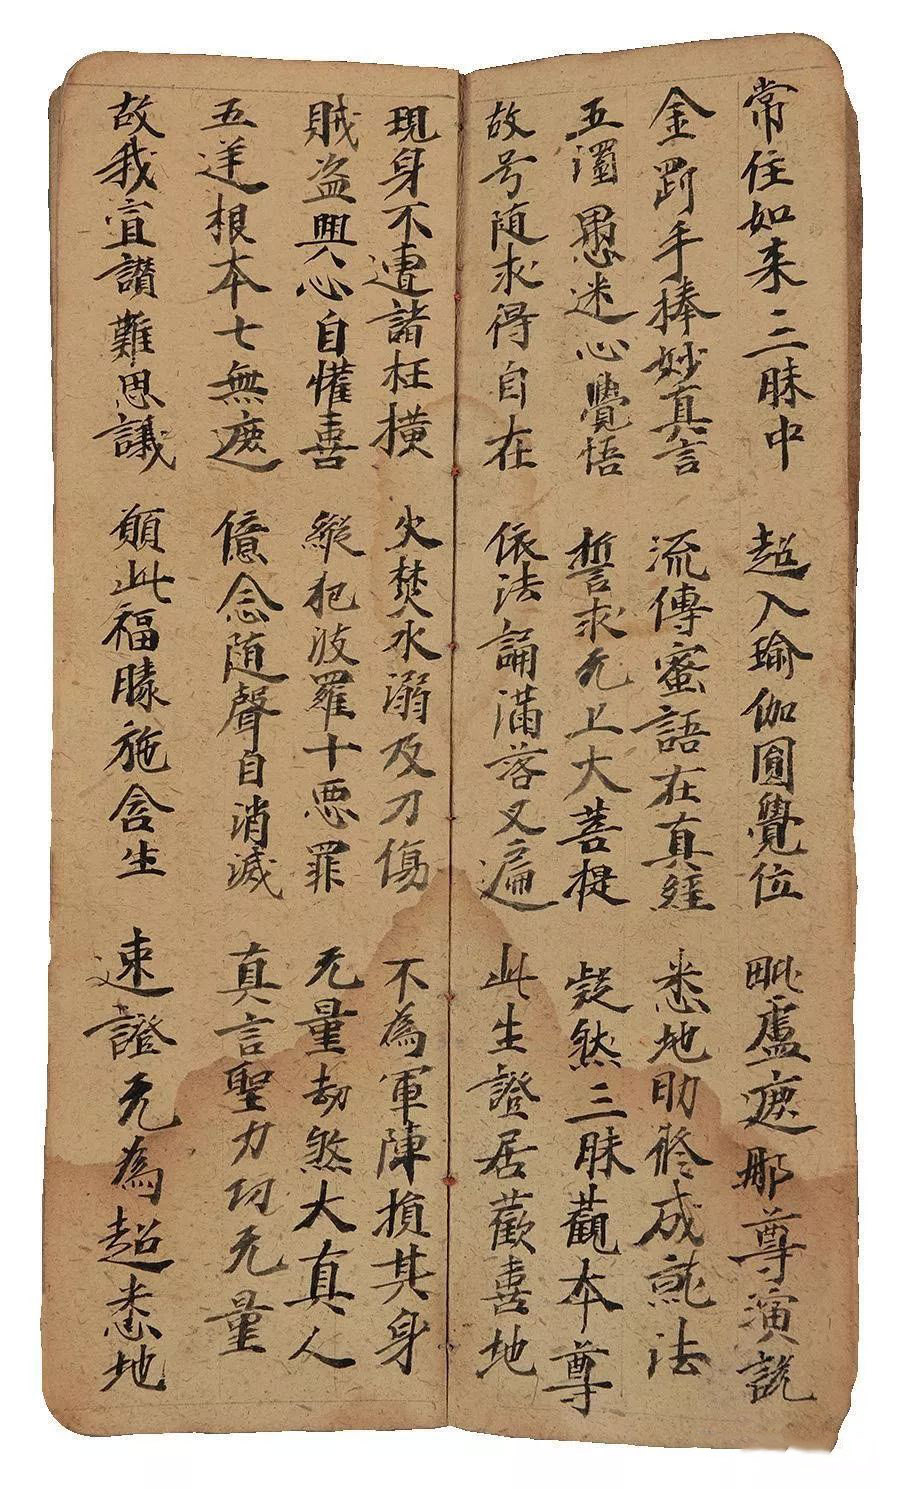 常住如来三昧中 超入瑜伽圓覺位 毗盧遮那尊演説
金罰手捧妙真言 流傳蜜語在真經 悉地助修成就法
五濁愚迷心覺悟 誓求无上大菩提 疑然三昧觀本尊
故号随求得自在 依法誦滿落叉遍 此生證居歡喜地
現身不遭諸枉横 火焚水溺及刀傷 不為軍陣損其身
賊盗興心自懽喜 縱犯波羅十惡罪 无量劫煞大真人
五逆根本七無遮 億念随聲自消滅 真言聖力功无量
故我宣讚難思議 願此福勝施含生 速證无為超悉地